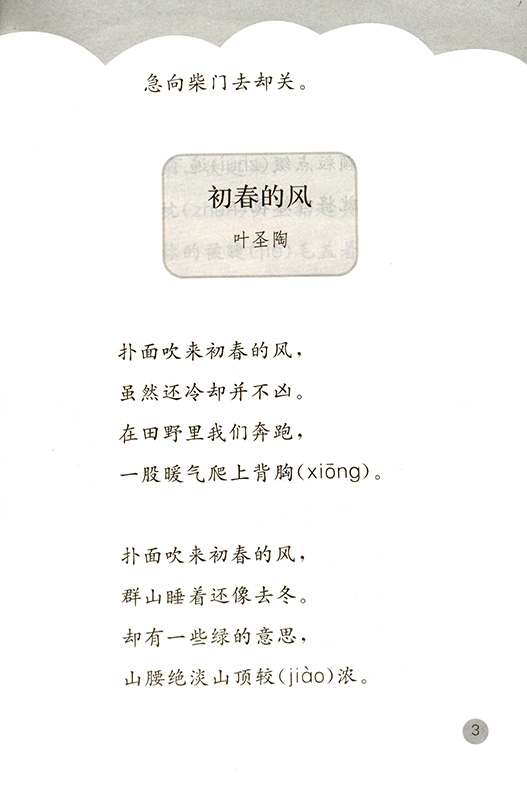 急向柴门去却关。
初春的风
叶圣陶
扑面吹来初春的风，
虽然还冷却并不凶。
在田野里我们奔跑，
一股暖气爬上背胸(xiōng)。
扑面吹来初春的风，
群山睡着还像去冬。
却有一些绿的意思，
山腰绝淡山顶较(jiào)浓。
3